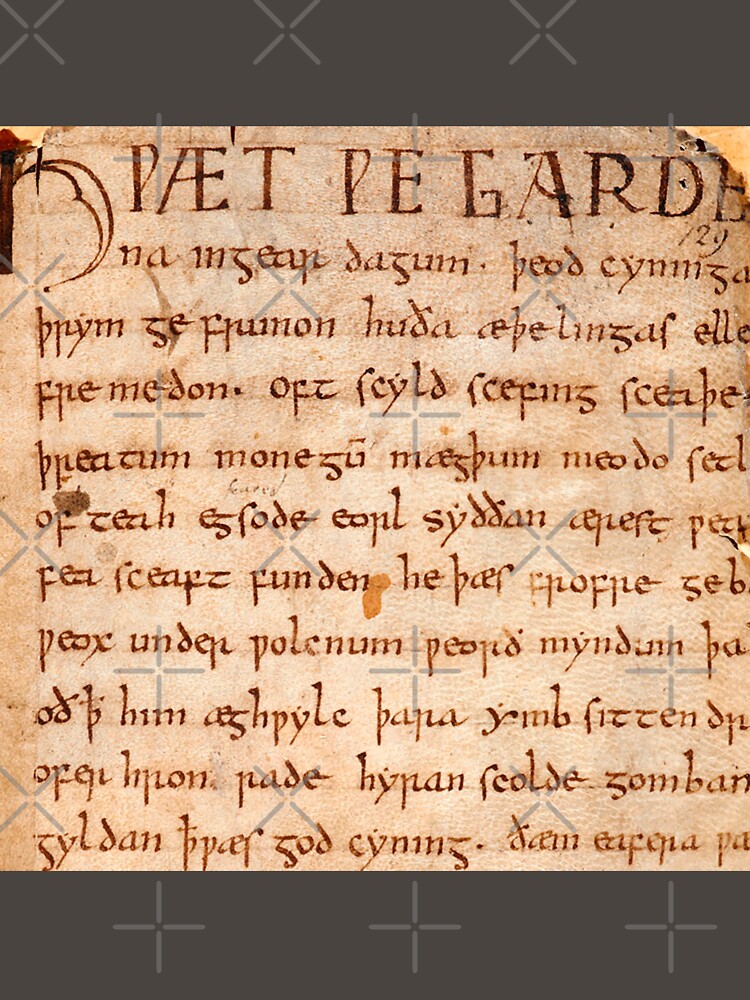 HǷÆT ǷE GARDE
129
na ingear dagum. þeod cyninga
þrym ge frunon huða æþelingas elle
fremedon. oft scyld scefing sceaþe
þreatum monegū mægþum meodo setl
of teah egsode eorl syððan ærest ƿear
fea sceaft funden he þæs frofre geb
ƿeox under ƿolcnum ƿeorð myndum þa
oð ꝥ him æghƿylc þara ymb sittendr
ofer hron rade hyran scolde gomban
gyldan ꝥ ƿæs god cyning. ðæm eafera ƿæ